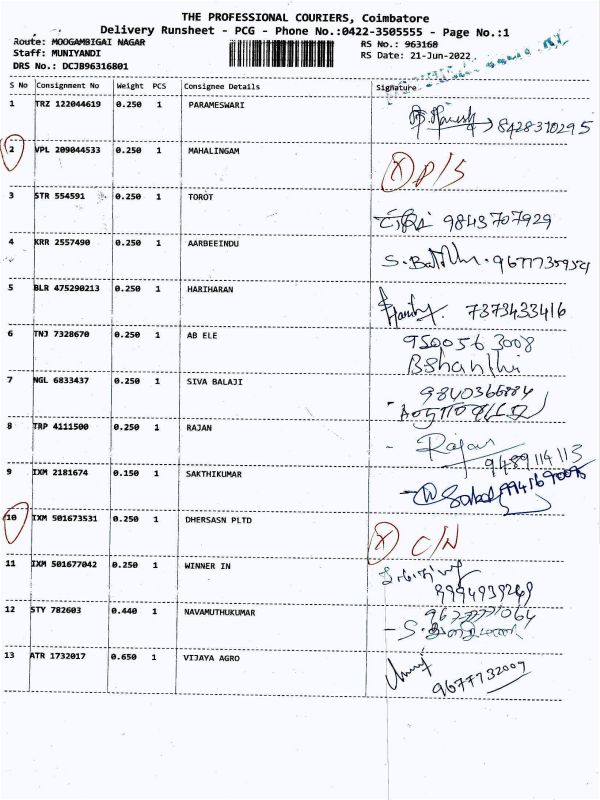 THE PROFESSIONAL COURIERS, Coimbatore
Delivery Runsheet - PCG - Phone No.:0422-3505555 - Page No.:1
Route: MOOGAMBIGAI NAGAR RS No.: 963160
Staff: MUNIYANDI RS Date: 21-Jun-2022
DRS No.: DCJB96316B01
S No Consignment No Weight PCS Consignee Details Signature
1 TRZ 122044619 0.250 1 PARAMESWARI 8428310295
2 VPL 209044533 0.250 1 MAHALINGAM X D/S
3 STR 554591 0.250 1 TOROT 9843707929
4 KRR 2557490 0.250 1 AARBEEINDU
5 BLR 475290213 0.250 1 HARIHARAN 7373433416
6 TNJ 7328670 0.250 1 AB ELE 9500563008
Bshanthi
7 NGL 6833437 0.250 1 SIVA BALAJI 9840366884
8 TRP 4111500 0.250 1 RAJAN - Rajan
9489114113
9 IXM 2181674 0.150 1 SAKTHIKUMAR
10 IXM 501673531 0.250 1 DHERSASN PLTD X C/N
11 IXM 501677042 0.250 1 WINNER IN
12 STY 782603 0.440 1 NAVAMUTHUKUMAR
13 ATR 1732017 0.650 1 VIJAYA AGRO
9677732007